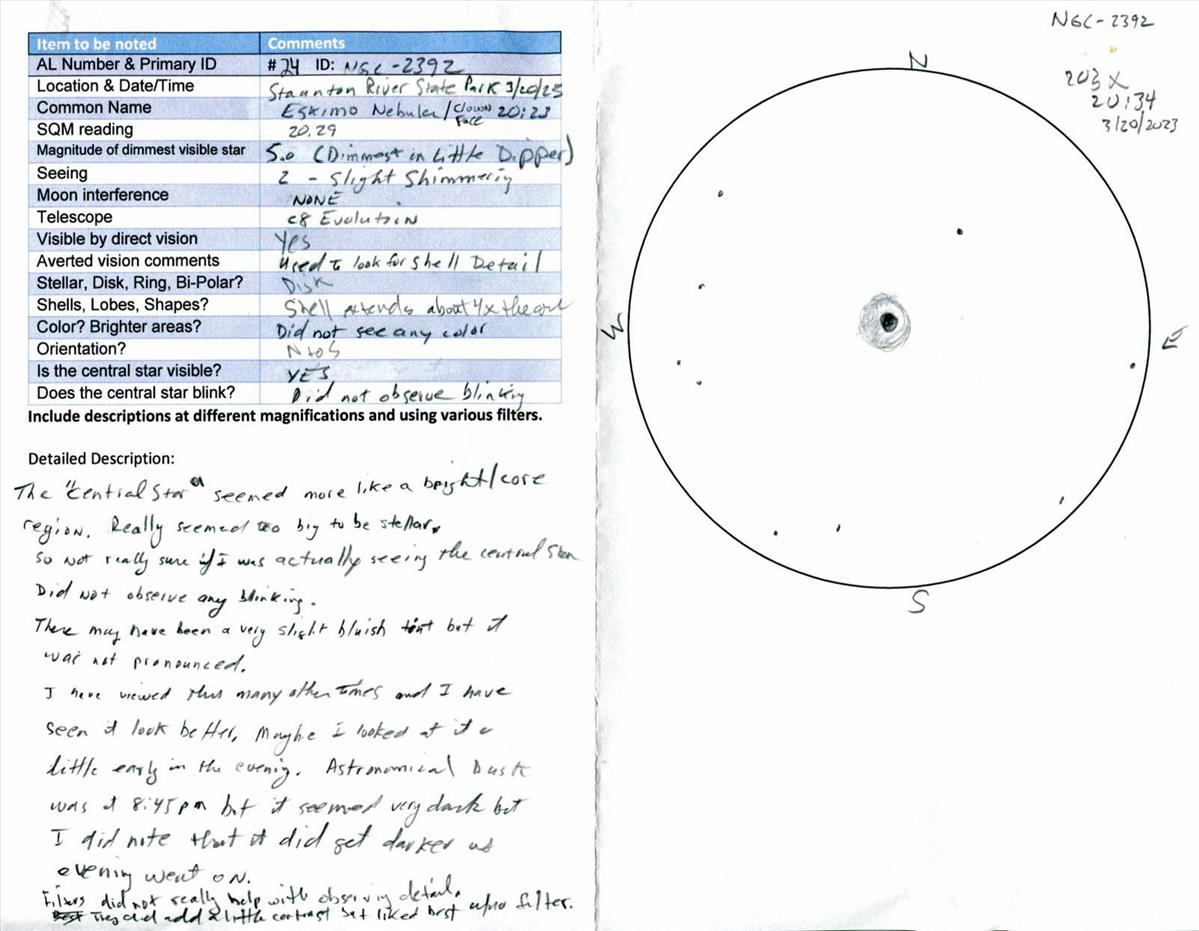 Item to be noted Comments
AL Number & Primary ID #24 ID: NGC-2392
Location & Date/Time Staunton River State Park 3/20/23
Common Name Eskimo Nebula/Clown Face 20:23
SQM reading 20.29
Magnitude of dimmest visible star 5.0 (Dimmest in Little Dipper)
Seeing 2 - Slight Shimmering
Moon interference NONE
Telescope C8 Evolution
Visible by direct vision Yes
Averted vision comments Used to look for Shell Detail
Stellar, Disk, Ring, Bi-Polar? Disk
Shells, Lobes, Shapes? Shell extends about 4x the
Color? Brighter areas? Did not see any color
Orientation? N to S
Is the central star visible? YES
Does the central star blink? Did not observe blinking
Include descriptions at different magnifications and using various filters.
Detailed Description:
The "central Star" seemed more like a bright/core
region. Really seemed too big to be stellar.
So not really sure if I was actually seeing the central star
Did Not observe any blinking.
There may have been a very slight bluish tint but it
was not pronounced.
I have viewed this many other times and I have
seen it look better, Maybe I looked at it a
little early in the evening. Astronomical Dusk
was at 8:45pm but it seemed very dark but
I did note that it did get darker as
evening went on.
Filters did not really help with observing detail.
They did add a little contrast but liked best w/no filter.
NGC-2392
203x
20:34
3/20/2023
N
W
E
S